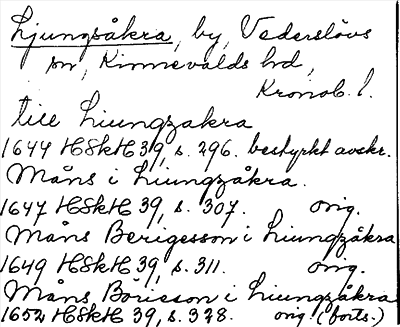 Ljungsåkra, by, Vederslövs
sn, Kinnevalds hd,
Kronob. l.
till Liungzakra
1644 HSkH 39, s. 296. bestyrkt avskr.
Måns i Liungzåkra.
1647 HSkH 39, s. 307. orig.
Måns Berigesson i Liungzåkra
1649 HSkH 39, s. 311. orig.
Måns Böricsson i Liungzåkra
1652 HSkH 39, s. 328. orig. (forts.)